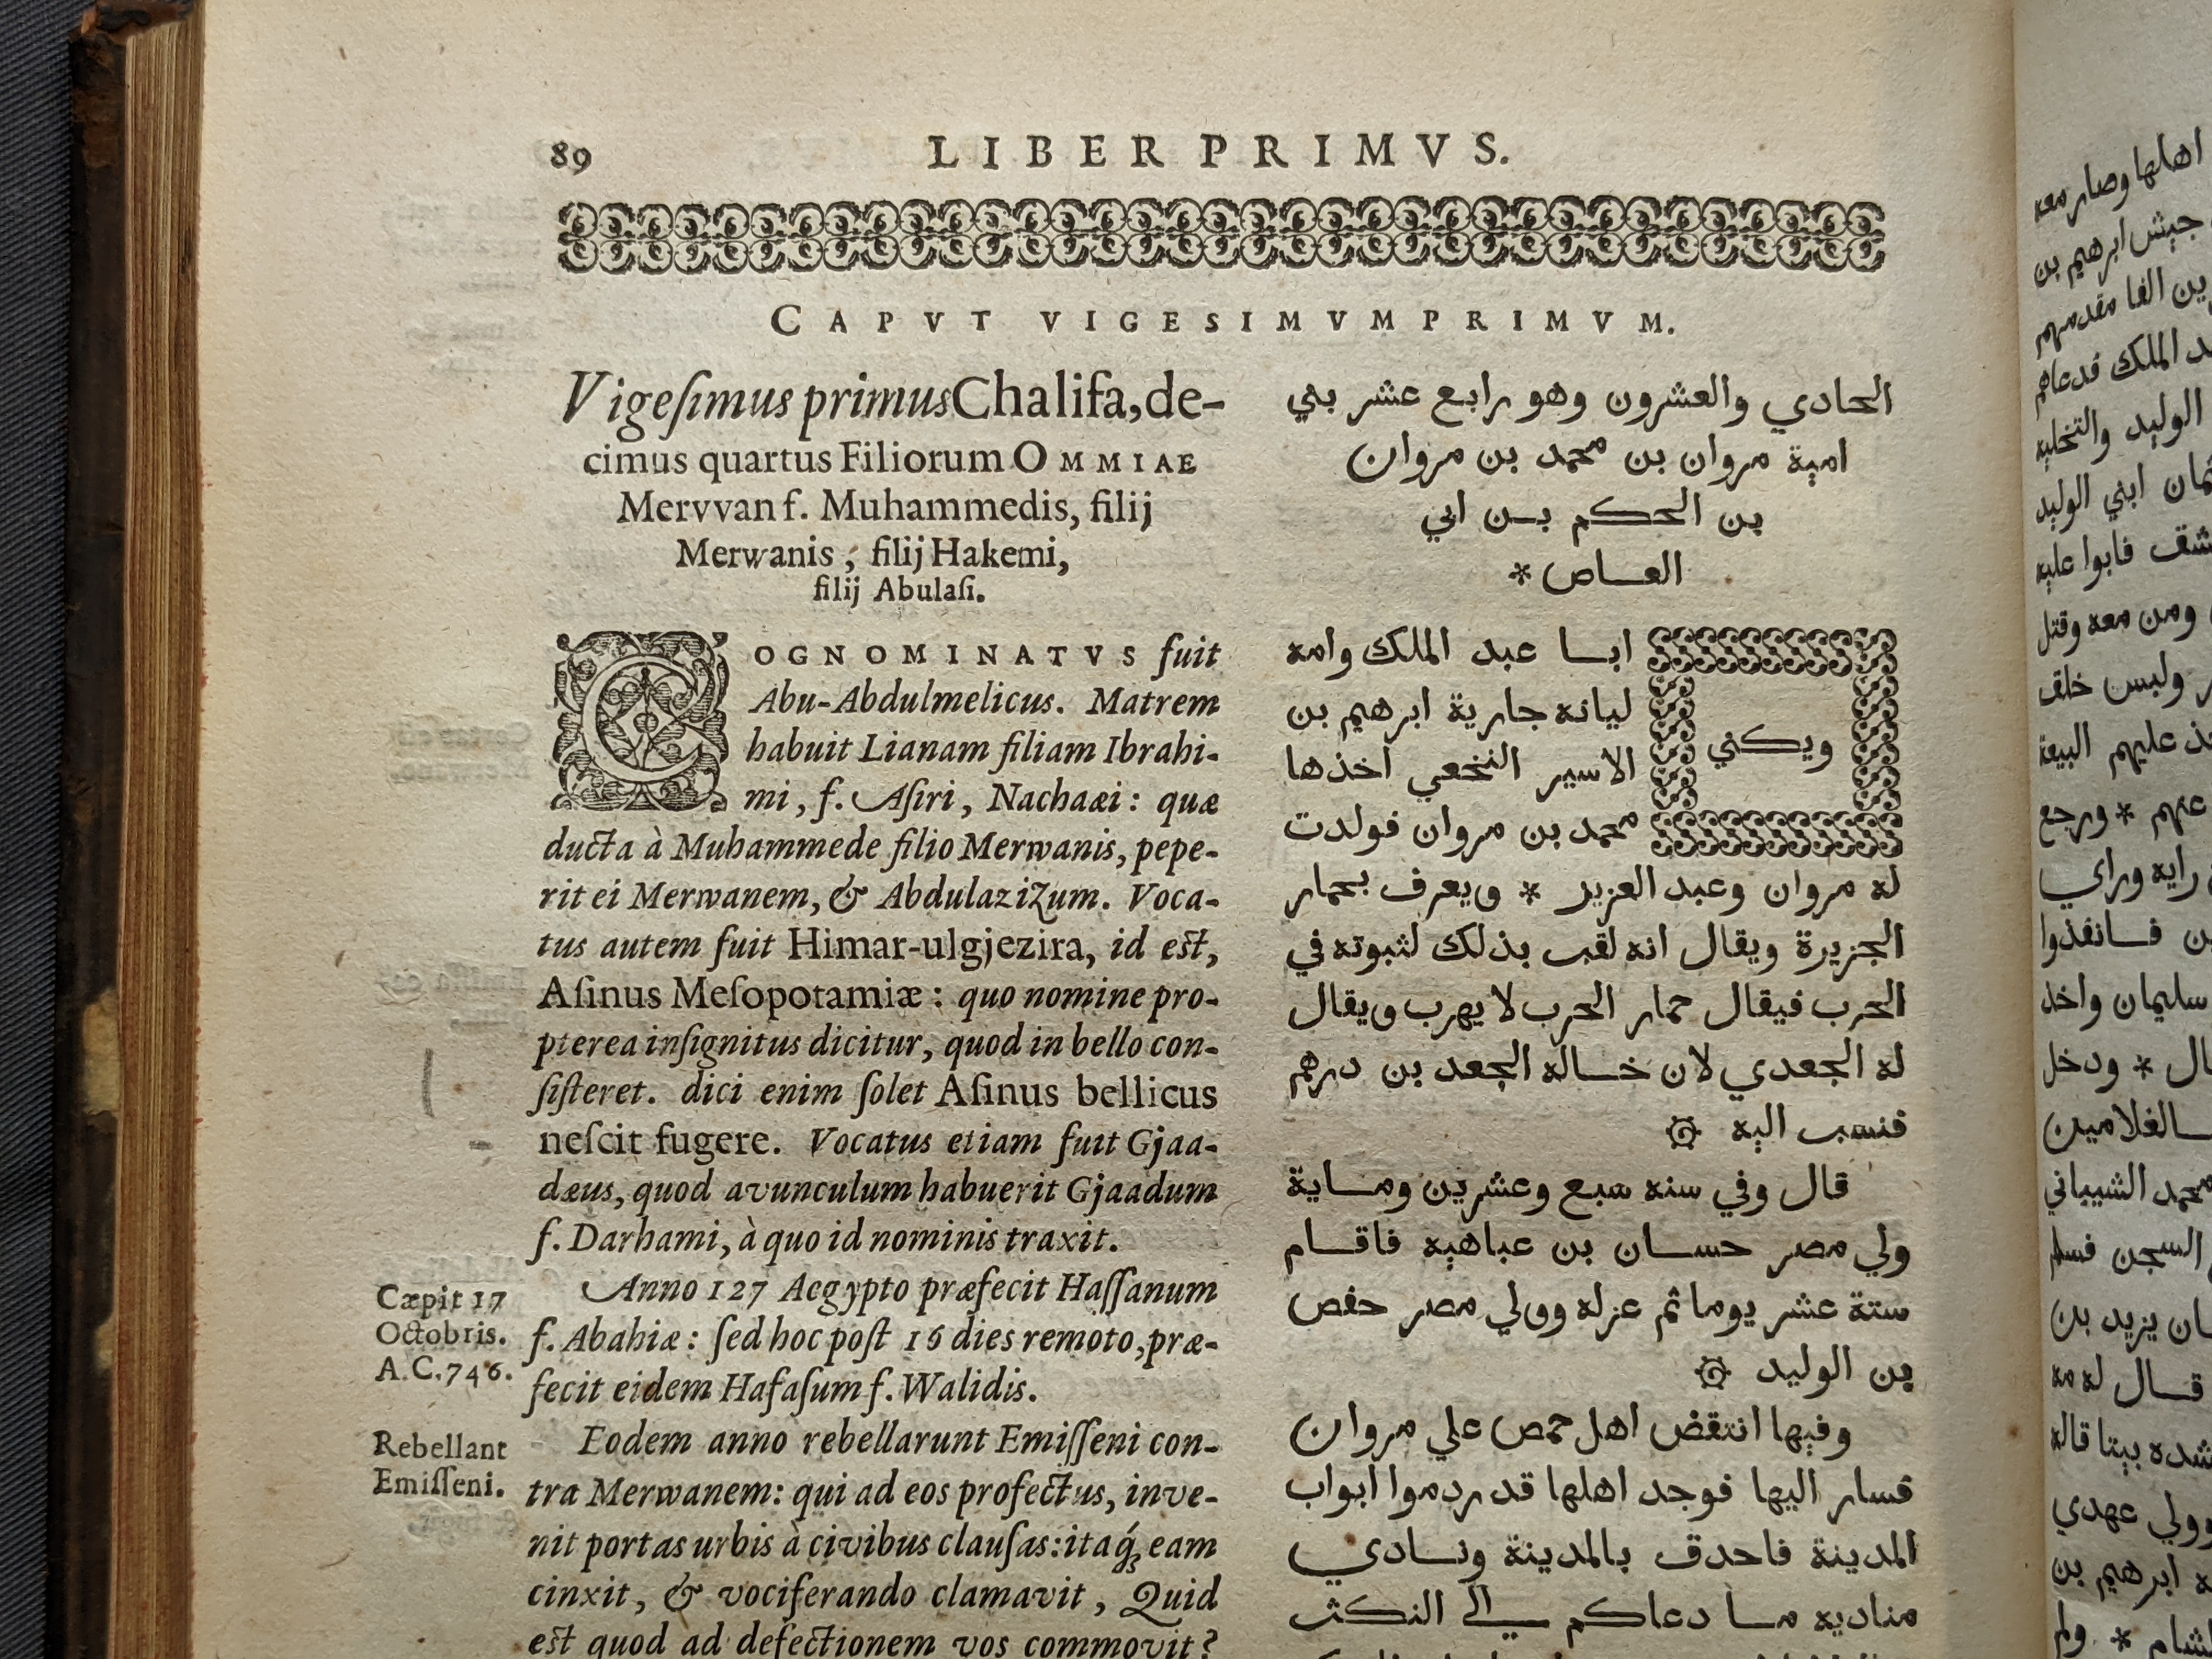 89
LIBER PRIMVS.
CAPVT VIGESIMVMPRIMVM.
Vigeſimus primus Chalifa, de-
cimus quartus Filiorum OMMIAE
Mervvan f. Muhammedis, filij
Merwanis, filij Hakemi,
filij Abulaſi.
COGNOMINATVS fuit
Abu-Abdulmelicus. Matrem
habuit Lianam filiam Ibrahi-
mi, f. Aſiri, Nachaæi: quæ
ducta à Muhammede filio Merwanis, pepe-
rit ei Merwanem, & Abdulazizum. Voca-
tus autem fuit Himar-ulgjezira, id eſt,
Aſinus Meſopotamiæ: quo nomine pro-
pterea inſignitus dicitur, quod in bello con-
ſiſteret. dici enim ſolet Aſinus bellicus
neſcit fugere. Vocatus etiam fuit Gjaa-
dæus, quod avunculum habuerit Gjaadum
f. Darhami, à quo id nominis traxit.
Anno 127 Aegypto præfecit Haſſanum
f. Abahiæ: ſed hoc poſt 16 dies remoto, præ-
fecit eidem Hafaſum f. Walidis.
Eodem anno rebellarunt Emiſſeni con-
tra Merwanem: qui ad eos profectus, inve-
nit portas urbis à civibus clauſas: itaq́ꝫ eam
cinxit, & vociferando clamavit, Quid
eſt quod ad defectionem vos commovit?
Cæpit 17
Octobris.
A.C.746.
Rebellant
Emiſſeni.
الحادي والعشرون وهو رابع عشر بني
امية مروان بن محمد بن مروان
بن الحكم بن ابي
العاص *
ويكني
ابا عبد الملك وامه
ليانه جارية ابرهيم بن
الاسير النخعي اخذها
محمد بن مروان فولدت
له مروان وعبد العزيز * ويعرف بحمار
الجزيرة ويقال انه لقب بذلك لثبوته في
الحرب فيقال حمار الحرب لا يهرب ويقال
له الجعدي لان خاله الجعد بن درهم
فنسب اليه
قال وفي سنه سبع وعشرين وماية
ولي مصر حسان بن عباهيه فاقام
ستة عشر يوما ثم عزله وولي مصر حفص
بن الوليد
وفيها انتقض اهل حمص علي مروان
فسار اليها فوجد اهلها قد ردموا ابواب
المدينة فاحدق بالمدينة ونادي
مناديه ما دعاكم الي النكث
اهلها وصار معه
جيش ابرهيم بن
الفا مقدمهم
الملك فدعاهم
الوليد والتخليه
ابني الوليد
فابوا عليه
ومن معه وقتل
وليس خلف
عليهم البيعة
عنهم * ورجع
رايه وراي
فانفذوا
سليمان واخذ
* ودخل
محمد الشيباني
السجن
يزيد بن
قال له
بيتا قاله
وولي عهدي
ابرهيم بن
* ولم